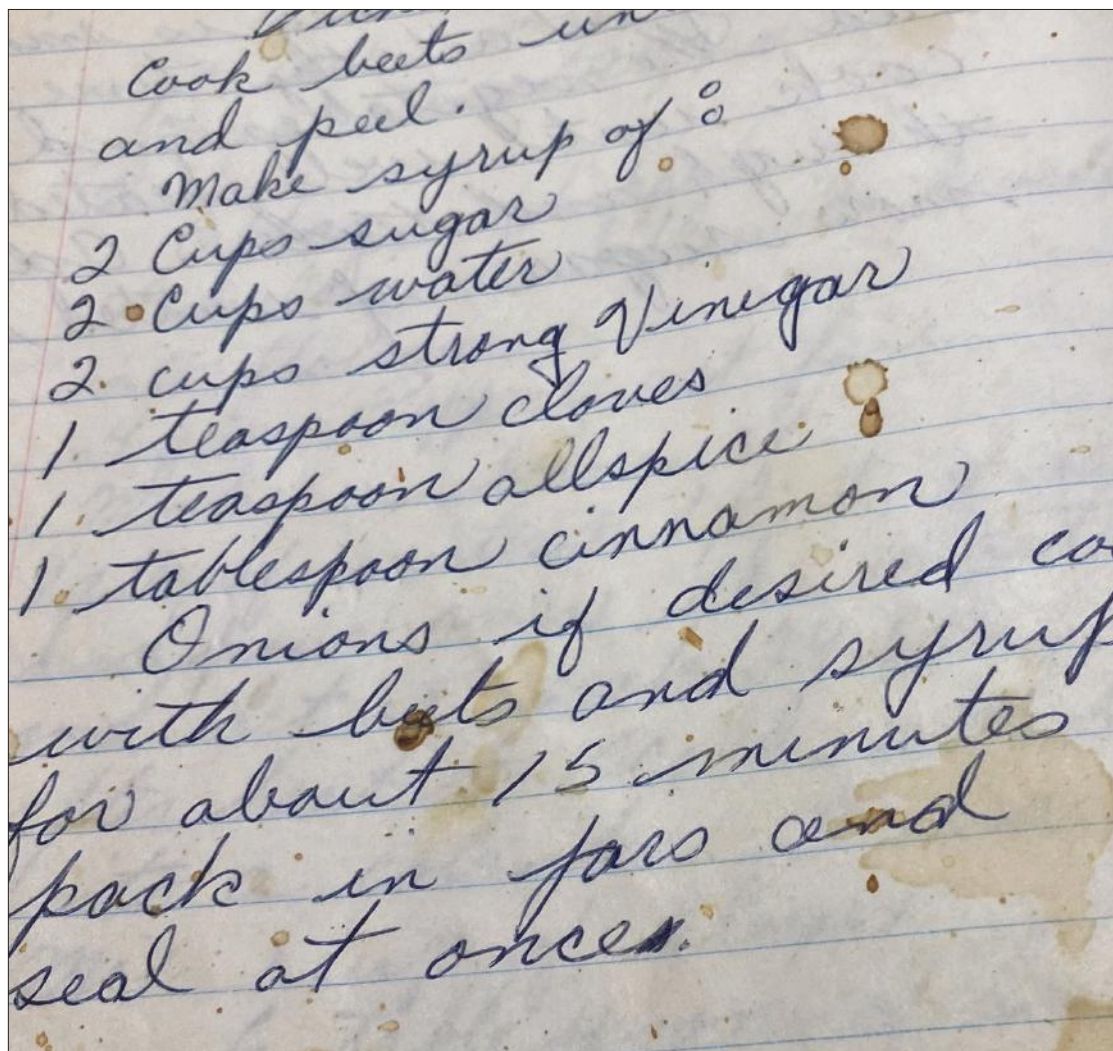 Cook beets
and peel.
Make syrup of :
2 Cups sugar
2 Cups water
2 cups strong Vinegar
1 teaspoon cloves
1 teaspoon allspice
1 tablespoon cinnamon
Onions if desired
with beets and syrup
for about 15 minutes
pack in jars and
seal at once.